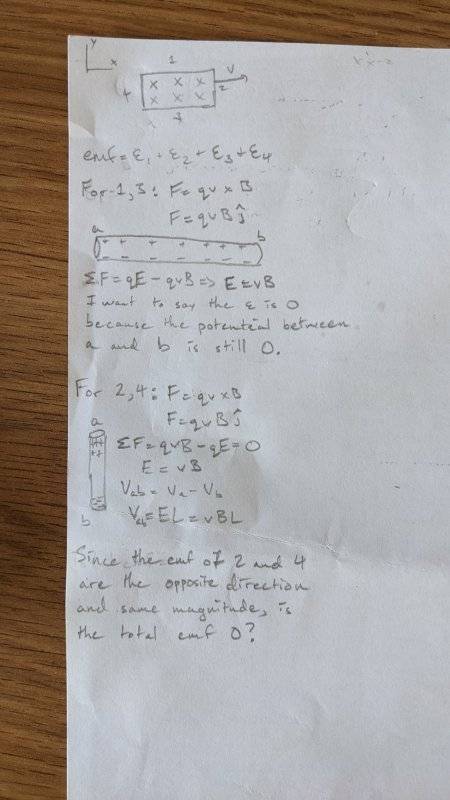 y
x
1
x x x
v
4
2
x x x
3
emf = ε₁ + ε₂ + ε₃ + ε₄
For 1,3: F = qv × B
F = qvB ĵ
a
b
+ + + + + + +
- - - - - - -
ΣF = qE - qvB => E = vB
I want to say the ε is 0
because the potential between
a and b is still 0.
For 2,4: F = qv × B
F = qvB ĵ
a
++
++
ΣF = qvB - qE = 0
E = vB
Vab = Va - Vb
b
Vab = EL = vBL
Since the emf of 2 and 4
are the opposite direction
and same magnitude, is
the total emf 0?